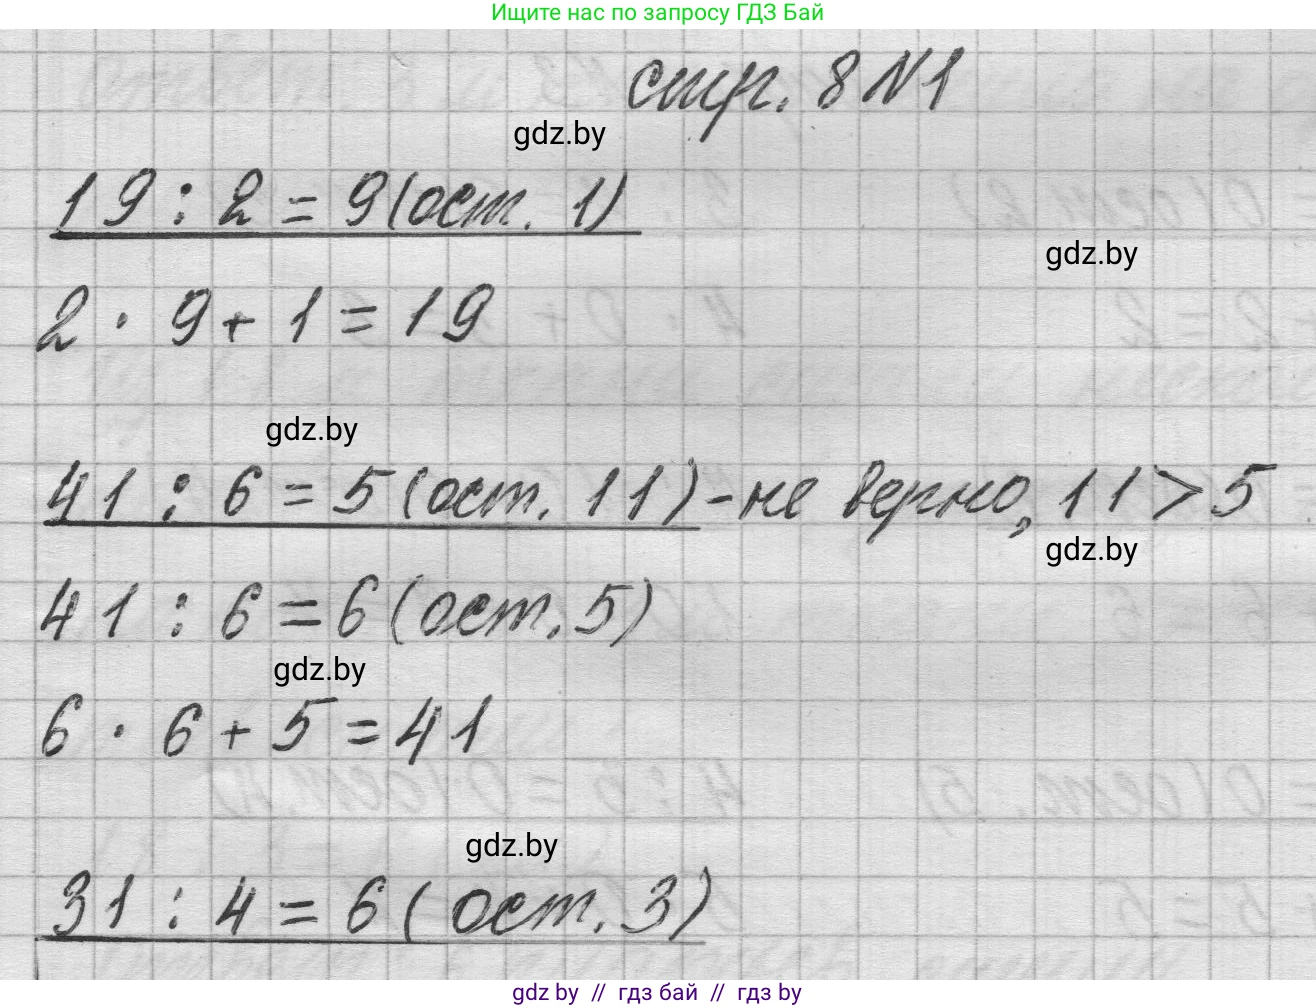 Ищите нас по запросу ГДЗ Бай
стр. 8 №1
gdz.by
19 : 2 = 9 (ост. 1)
gdz.by
2 · 9 + 1 = 19
gdz.by
41 : 6 = 5 (ост. 11) - не верно, 11 > 5
gdz.by
41 : 6 = 6 (ост. 5)
gdz.by
6 · 6 + 5 = 41
gdz.by
31 : 4 = 6 (ост. 3)
gdz by // гдз бай // гдз by